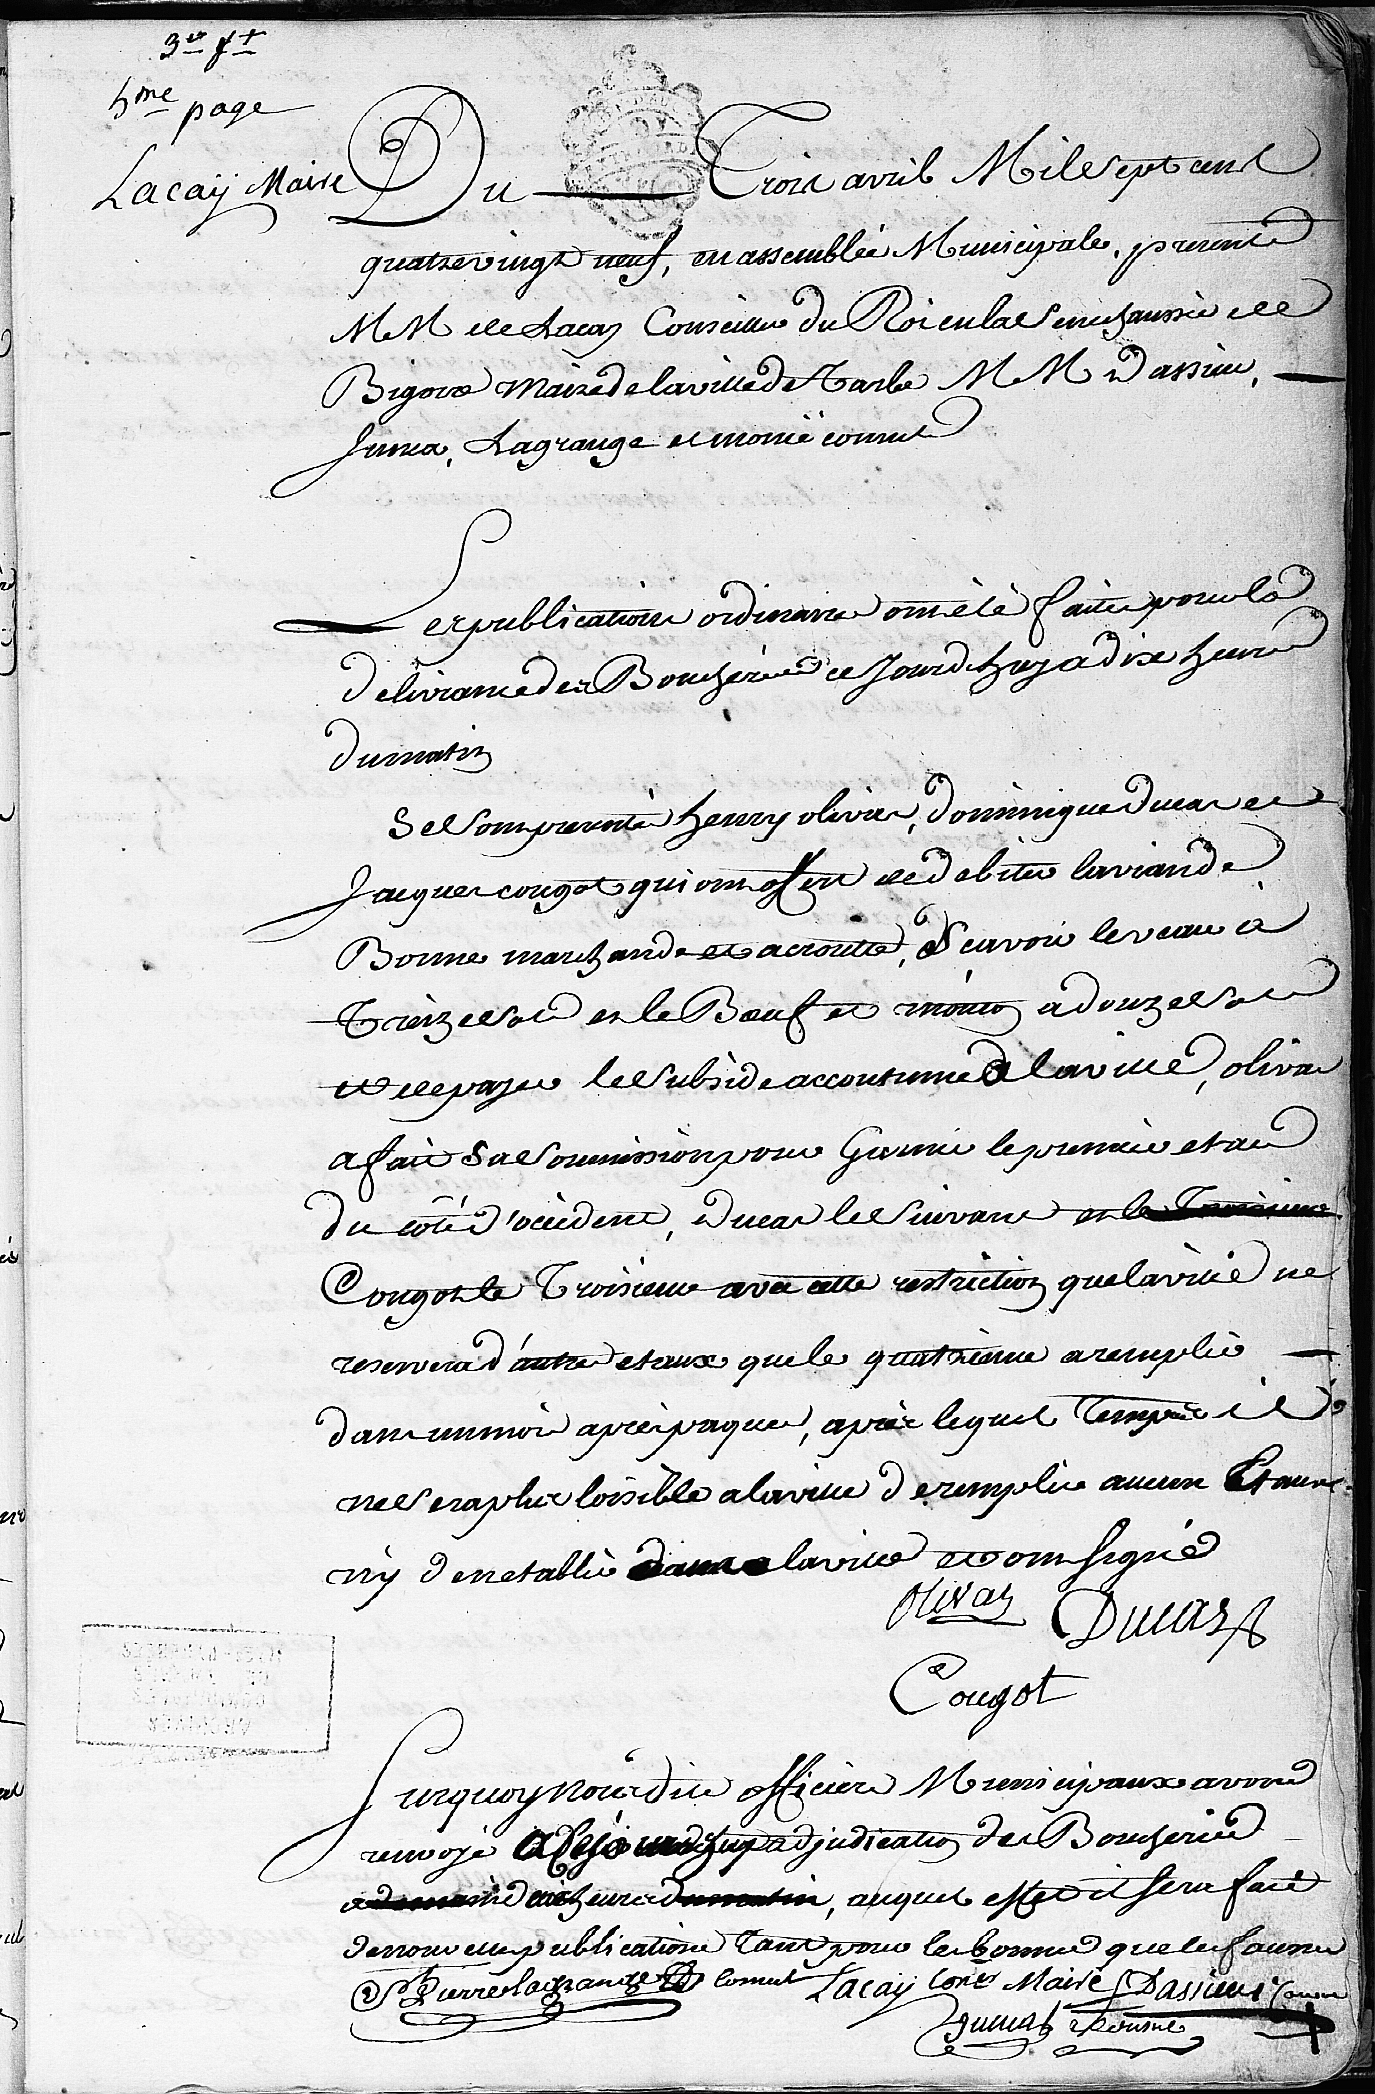 3er ft
5me page
Lacaÿ Maire
Du Trois avril Mil Sept cent
quatrevingt neuf, en assemblée Municipale, presents
MM de Lacay Conseiller du Roi en la Senechaussée de
Bigorre Maire de la ville de Tarbe MM Dassieu,
Junca, Lagrange et monié consuls
Les publications ordinaires ont été faites pour la
delivrance des Boucheries ce Jourd'huy a dix heures
du matin
Se sont presentés henry olivas, dominique ducas et
Jacques cougot qui ont offert de debiter la viande
Bonne marchande et acroutte, Scavoir le veau à
Treize Sols et le Bœuf et mouton a douze Sols
et de payer le Subside accoutumé a la ville, olivas
a fait Sa Soumission pour Garnir le premier etau
du coté d'occident, ducas le Suivant et le Troisieme
Cougot le Troisieme avec cette restriction que la ville ne
reservera d'autres etaux que le quatrieme a remplir
dans un mois après paques, après lequel Temps il
ne Sera plus loisible a la ville de remplir aucun Etaux
ny d'en etablir dans la ville et ont signé
Olivas Ducas
Cougot
Surquoy nous dits officiers Municipaux avons
renvoyé adjudication des Boucheries
a demain dix heures du matin, auquel effet il sera fait
de nouvelles publications Tant pour les bonnes que les fausses
Pierre lagrange consul Lacaÿ Coner Maire Dassieu Consul